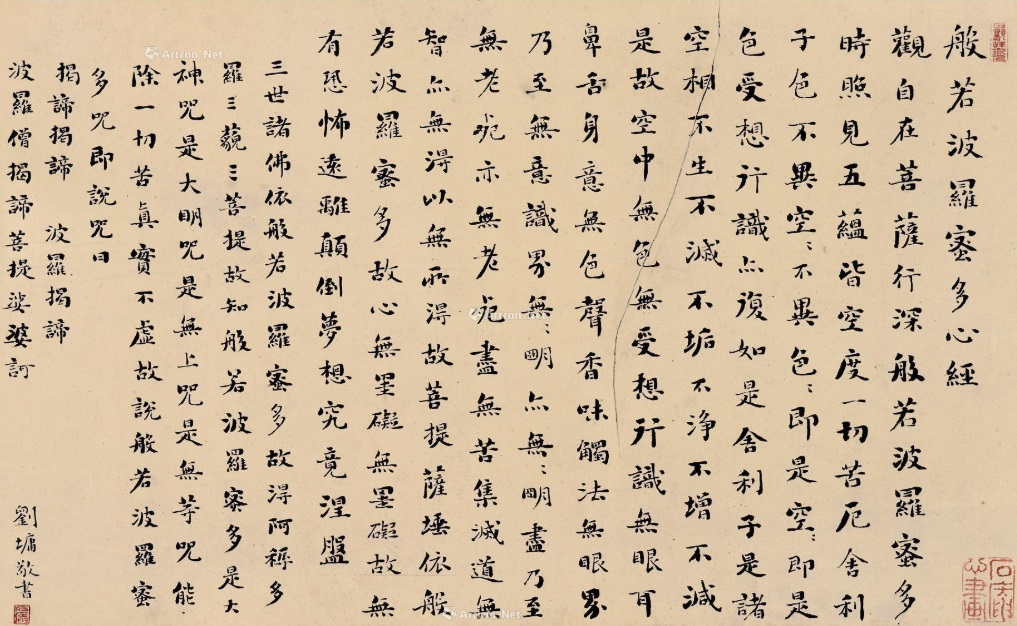 般若波羅蜜多心經
觀自在菩薩行深般若波羅蜜多
時照見五蘊皆空度一切苦厄舍利
子色不異空〻不異色〻即是空〻即是
色受想行識亦復如是舍利子是諸
空相不生不滅不垢不淨不增不減
是故空中無色無受想行識無眼耳
鼻舌身意無色聲香味觸法無眼界
乃至無意識界無〻明亦無〻明盡乃至
無老死亦無老死盡無苦集滅道無
智亦無得以無所得故菩提薩埵依般
若波羅蜜多故心無罣礙無罣礙故無
有恐怖遠離顛倒夢想究竟涅盤
三世諸佛依般若波羅蜜多故得阿耨多
羅三藐三菩提故知般若波羅蜜多是大
神咒是大明咒是無上咒是無等咒能
除一切苦真實不虛故說般若波羅蜜
多咒即說咒曰
揭諦揭諦 波羅揭諦
波羅僧揭諦菩提娑婆訶
劉墉敬書
Artron.Net
Artron.Net
Artron.Net